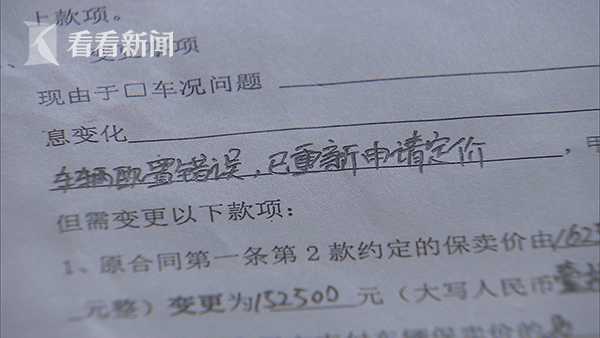 上款项。
看看新闻
项
现由于□车况问题
息变化
车辆配置错误，已重新申请定价
但需变更以下款项：
1、原合同第一条第2款约定的保卖价由162
元整）变更为152500元（大写人民币壹拾